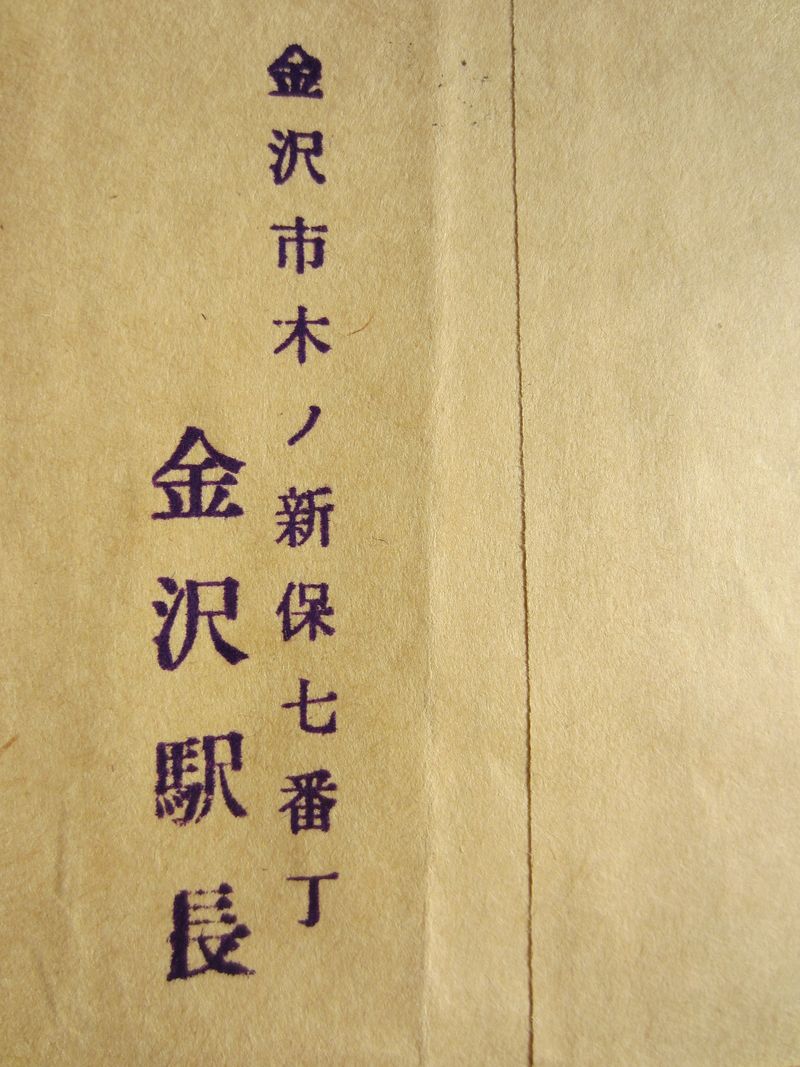 金沢市木ノ新保七番丁
金沢駅長